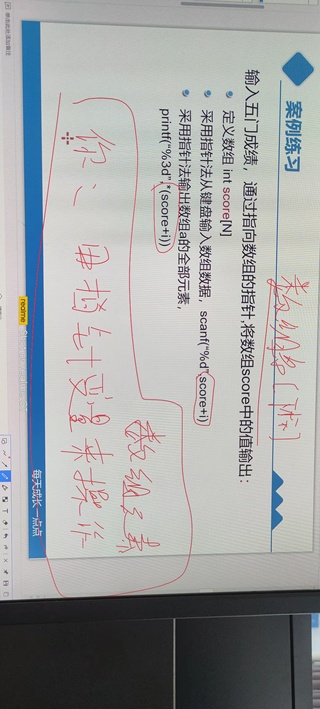 案例练习
输入五门成绩，通过指向数组的指针,将数组score中的值输出：
定义数组 int score[N]
采用指针法从键盘输入数组数据，scanf("%d",score+i)
采用指针法输出数组a的全部元素，
printf("%3d",*(score+i))
数组
用指针变量来操作
数组元素
每天成长一点点
realme